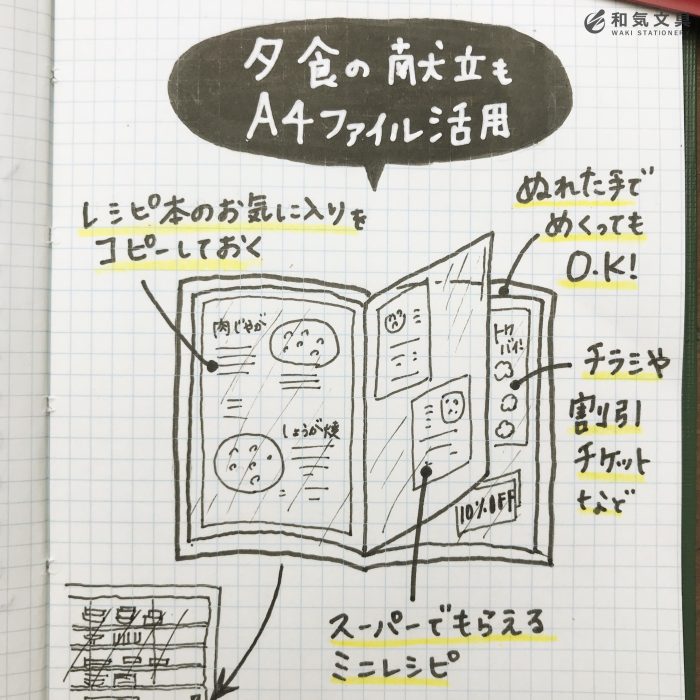 和気文具
WAKI STATIONERY
夕食の献立も
A4ファイル活用
レシピ本のお気に入りを
コピーしておく
ぬれた手で
めくっても
O.K!
肉じゃが
しょうが焼
トクバイ
チラシや
割引
チケット
など
10%OFF
スーパーでもらえる
ミニレシピ